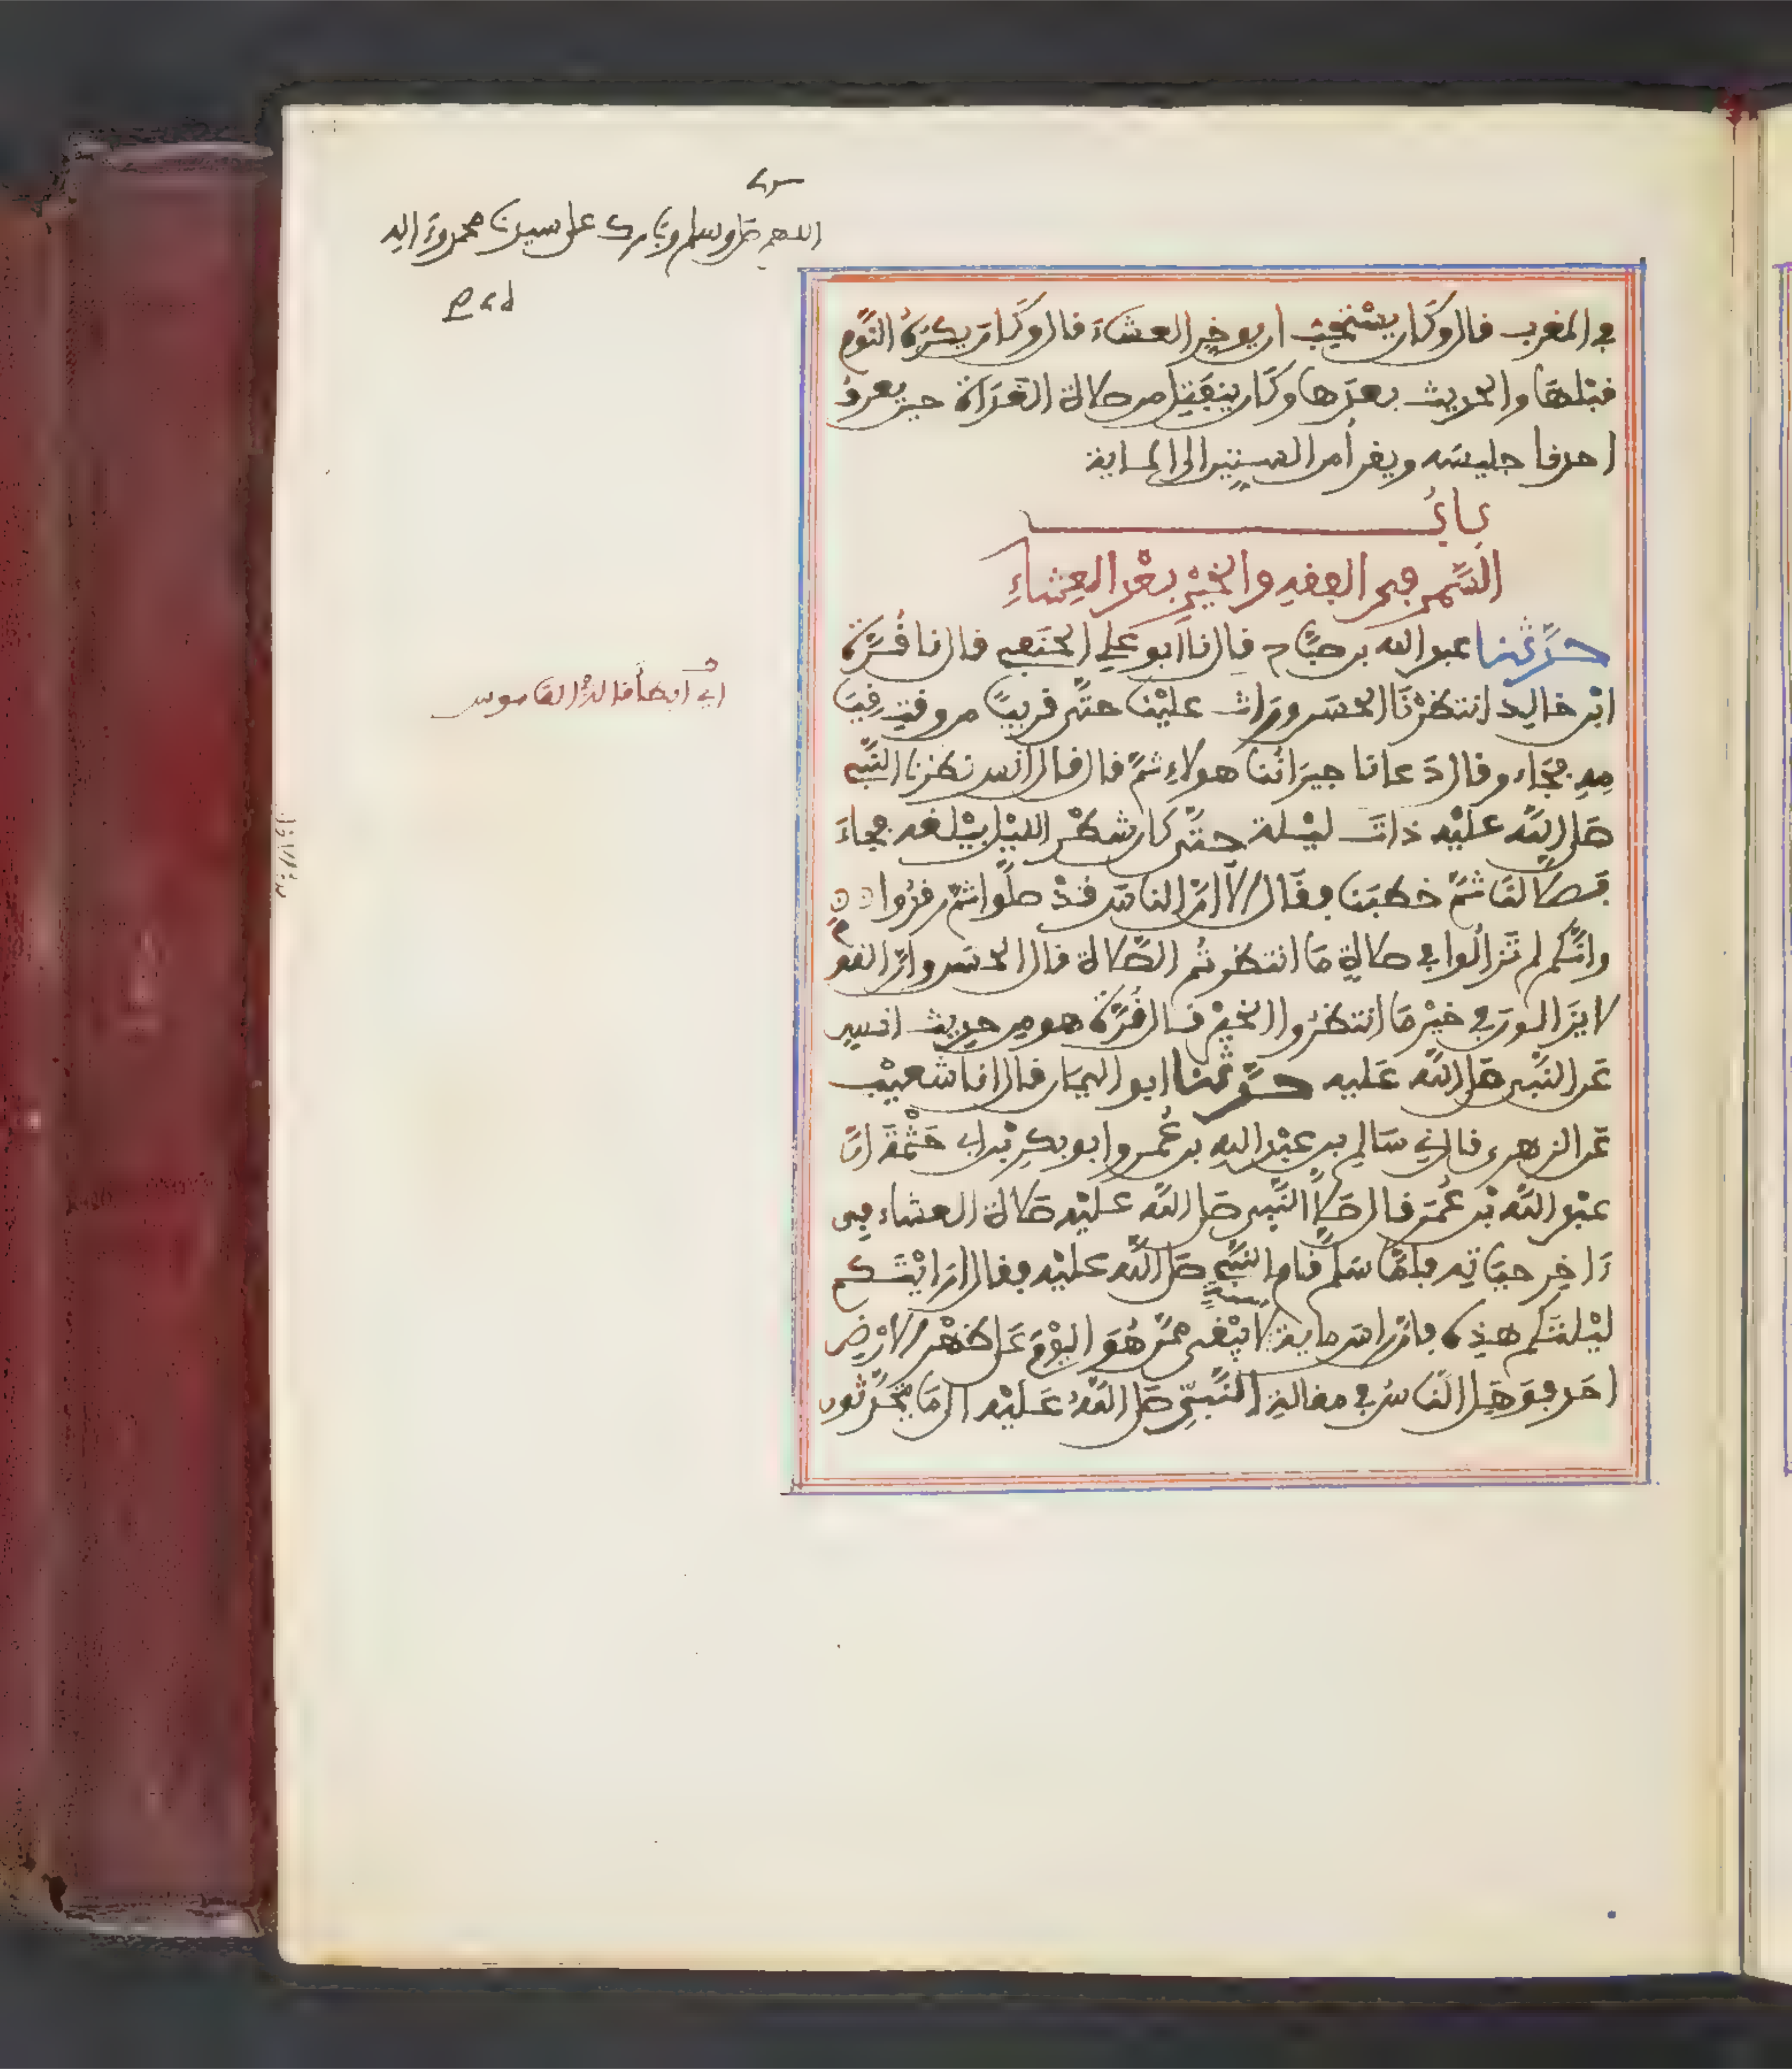 اللهم صل وسلم وبارك على سيدنا محمد وءاله
في المغرب قال وكان يستحب ان يوخر العشاء قال وكان يكره النوم
قبلها والحديث بعدها وكان ينفتل من صلاة الغداة حين يعرف
احدنا جليسه ويقرأ من الستين الى المائة
باب
السمر في الفقه والخير بعد العشاء
حدثنا عبد الله بن صباح قال نا ابو علي الحنفي قال نا قرة
ابن خالد انتظرنا الحسن وراث علينا حتى قريبا من وقت قيا
مه فجاء وقال دعانا جيراننا هولاء ثم قال قال انس نظرنا النبي
صلى الله عليه ذات ليلة حتى كان شطر الليل يبلغه فجاء
فصلا لنا ثم خطبنا فقال الا ان الناس قد صلوا ثم رقدوا
وانكم لم تزالوا في صلاة ما انتظرتم الصلاة قال الحسن وان القوم
لا يزالون في خير ما انتظروا الخير قال قرة هو من حديث انس
عن النبي صلى الله عليه حدثنا ابو اليمان قال انا شعيب
عن الزهري قال ني سالم بن عبد الله بن عمر وابو بكر بن ابي حثمة ان
عبد الله بن عمر قال صلا النبي صلى الله عليه صلاة العشاء في
ءاخر حياته فلما سلم قام النبي صلى الله عليه فقال ارايتكم
ليلتكم هذه فان راس ماية سنة لا يبقى ممن هو اليوم على ظهر الارض
احد فوهل الناس في مقالة النبي صلى الله عليه الى ما يتحدثون
أي أبطأ قاله القاموس